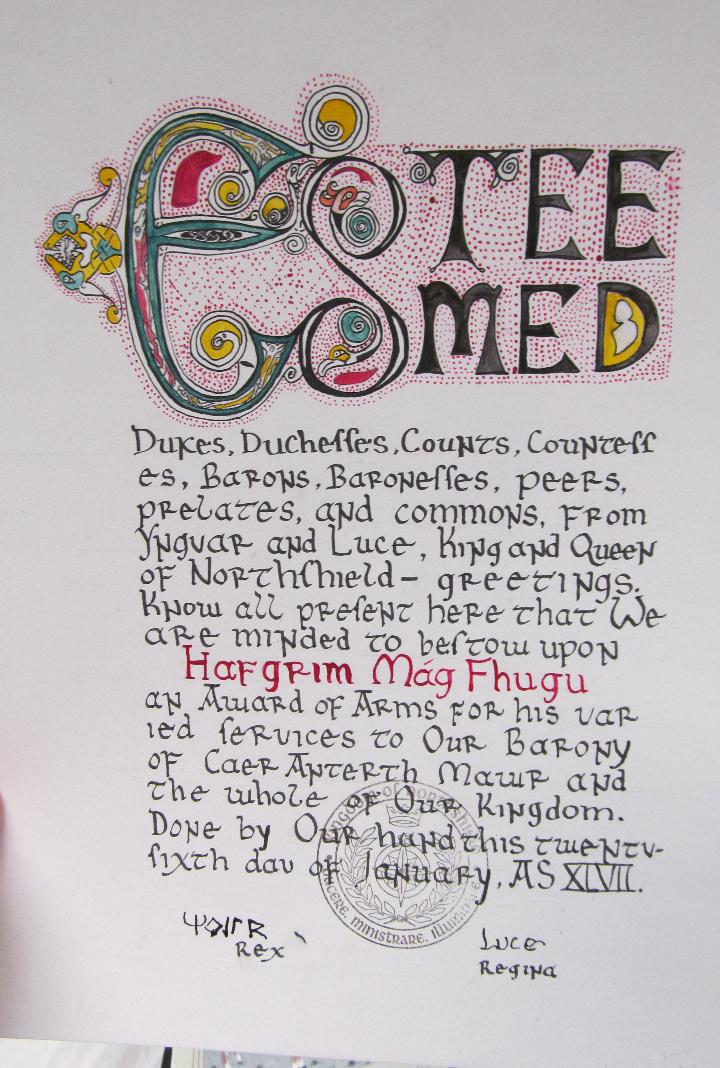 ESTEE
MED
Dukes, Ducheſſes, Counts, Counteſſ
es, Barons, Baroneſſes, peers,
prelates, and commons, from
Yngvar and Luce, King and Queen
of Northſhield – greetings.
Know all preſent here that We
are minded to beſtow upon
Hafgrim Mág Fhugu
an Award of Arms for his var
ied ſervices to Our Barony
of Caer Anterth Mawr and
the whole of Our Kingdom.
Done by Our hand this twenty-
ſixth day of January, AS XLVII.
Rex
Luce
Regina
MINISTRARE.